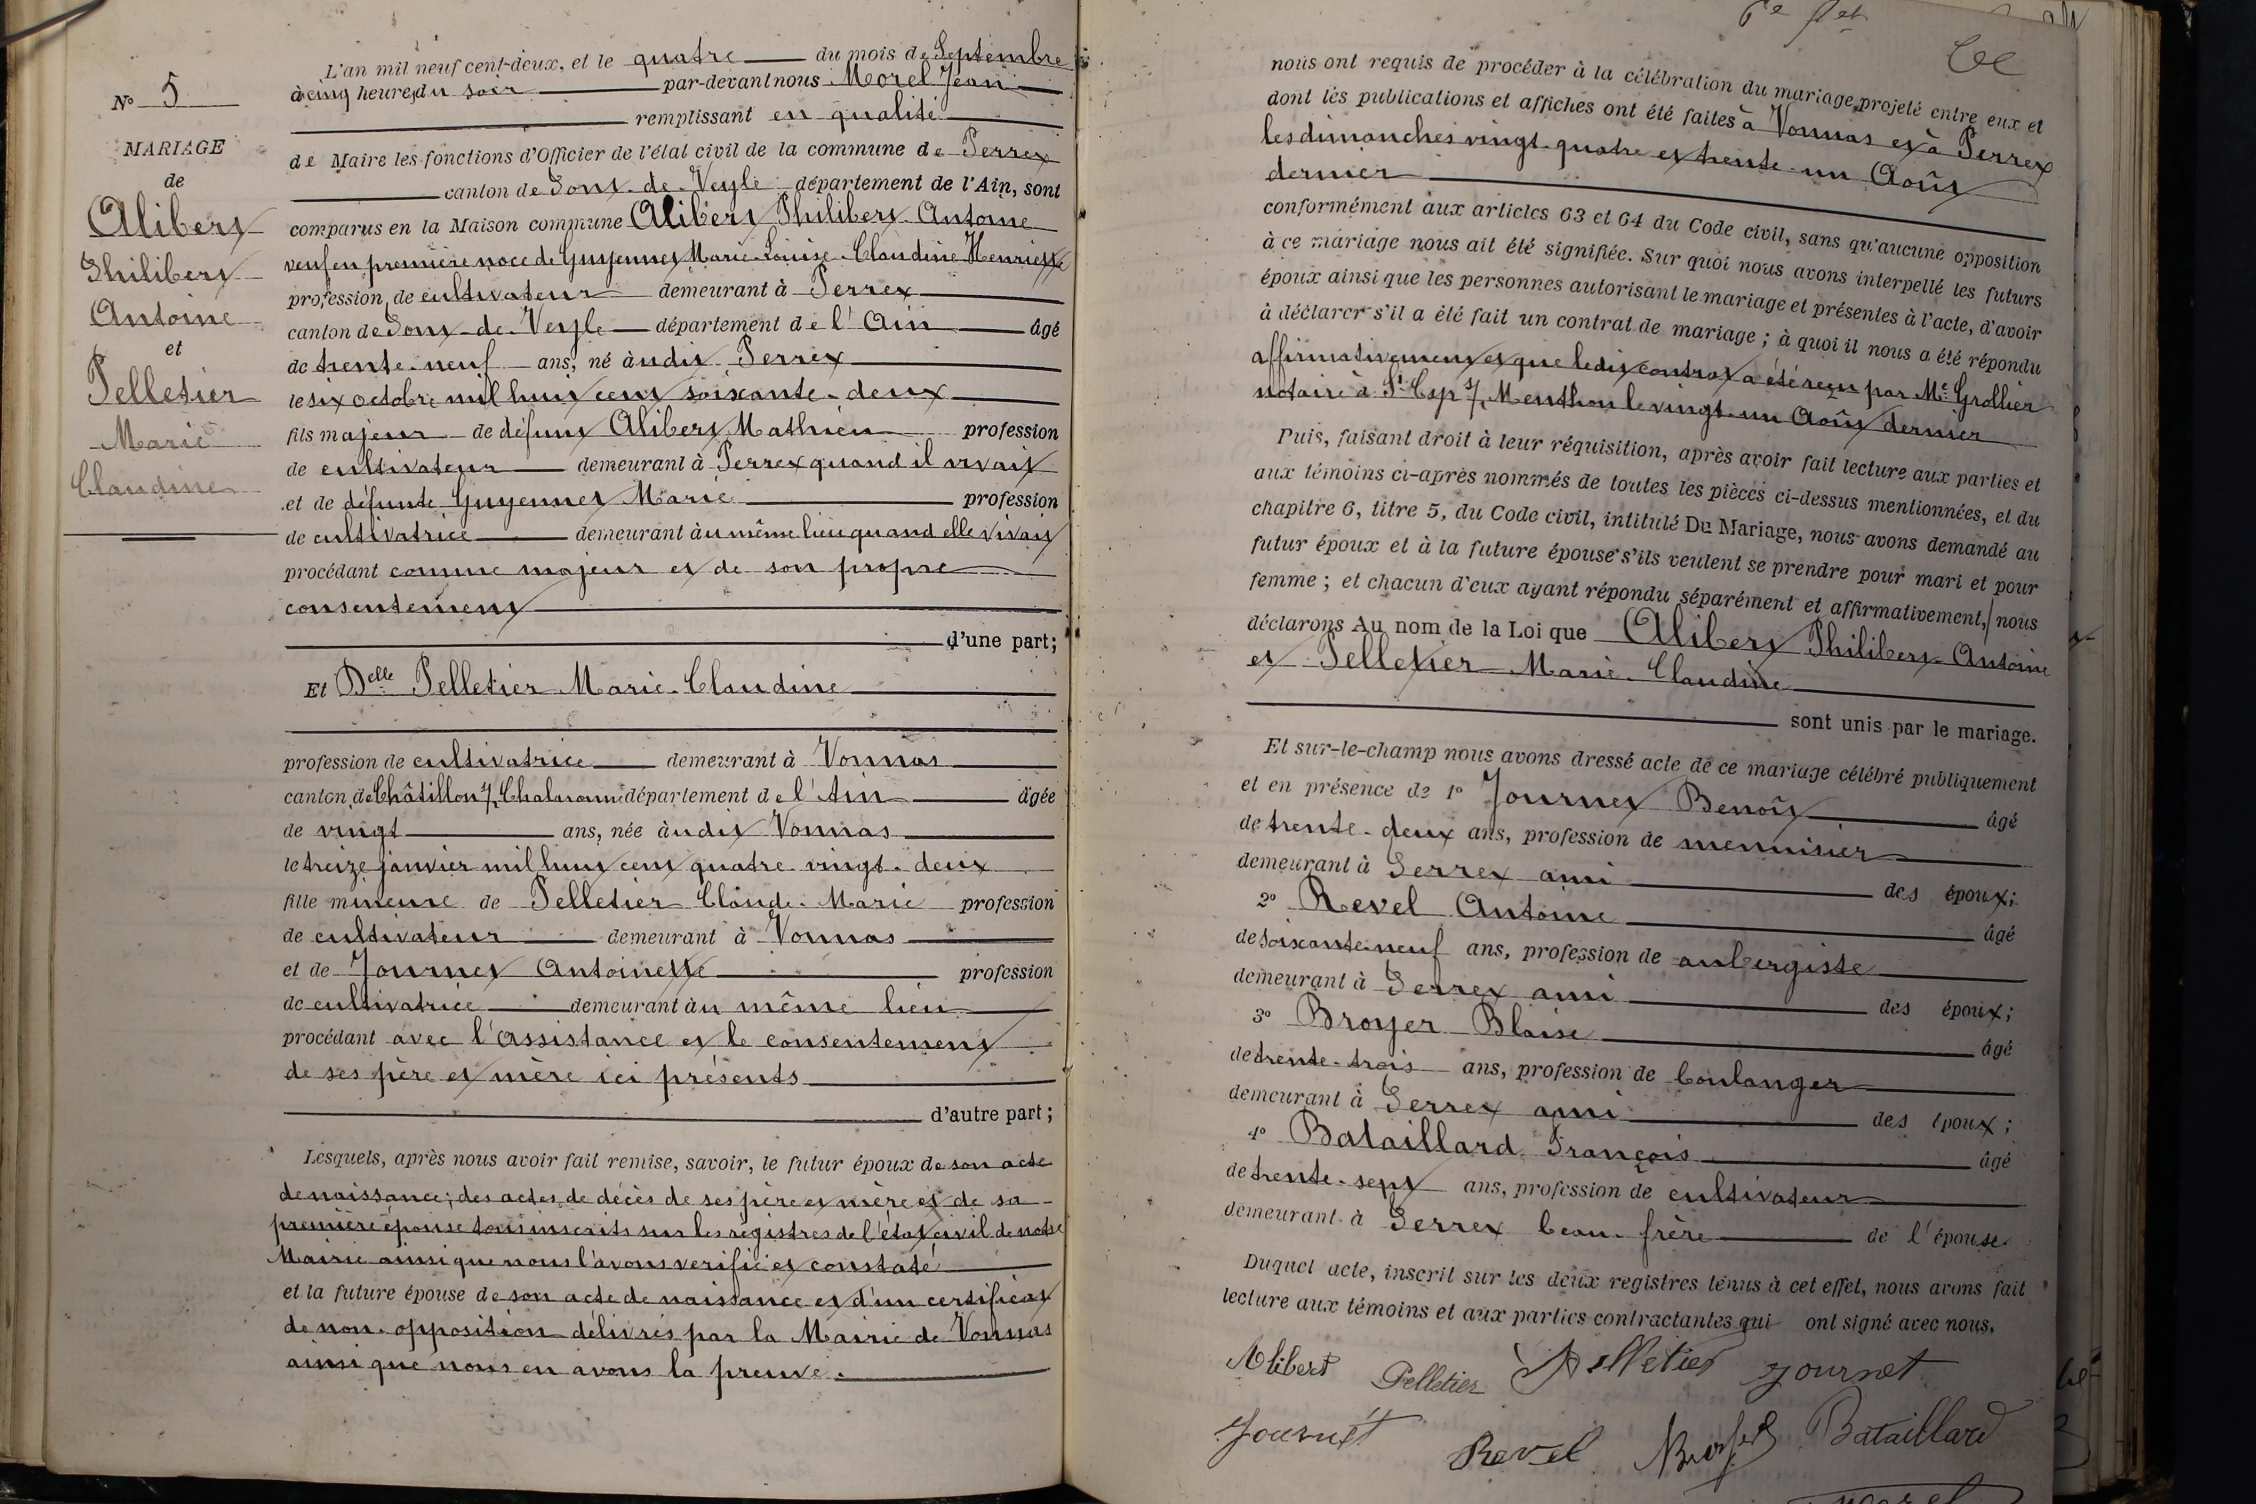 N° 5
MARIAGE
de
Alibert
Philibert
Antoine
et
Pelletier
Marie
Claudine
L'an mil neuf cent-deux, et le quatre du mois de Septembre
à cinq heures du soir par-devant nous Morel Jean
remplissant en qualité
de Maire les fonctions d'Officier de l'état civil de la commune de Perrex
canton de Pont-de-Veyle département de l'Ain, sont
comparus en la Maison commune Alibert Philibert-Antoine
veuf en première noce de Guyennet Marie-Louise-Claudine-Henriette
profession de cultivateur demeurant à Perrex
canton de Pont-de-Veyle département de l'Ain âgé
de trente-neuf ans, né àudit Perrex
le six octobre mil huit cent soixante-deux
fils majeur de défunt Alibert Mathieu profession
de cultivateur demeurant à Perrex quand il vivait
et de défunte Guyennet Marie profession
de cultivatrice demeurant àu même lieu quand elle vivait
procédant comme majeur et de son propre
consentement
d'une part;
Et Delle Pelletier Marie-Claudine
profession de cultivatrice demeurant à Vonnas
canton de Châtillon s/ Chalaronne département de l'Ain âgée
de vingt ans, née àudit Vonnas
le treize janvier mil huit cent quatre-vingt-deux
fille mineure de Pelletier Claude-Marie profession
de cultivateur demeurant à Vonnas
et de Journet Antoinette profession
de cultivatrice demeurant àu même lieu
procédant avec l'assistance et le consentement
de ses père et mère ici présents
d'autre part;
Lesquels, après nous avoir fait remise, savoir, le futur époux de son acte
de naissance; des actes de décès de ses père et mère et de sa
première épouse tous inscrits sur les régistres de l'état civil de notre
Mairie ainsi que nous l'avons verifié et constaté
et la future épouse de son acte de naissance et d'un certificat
de non-opposition délivrés par la Mairie de Vonnas
ainsi que nous en avons la preuve.
6e
nous ont requis de procéder à la célébration du mariage projeté entre eux et
dont les publications et affiches ont été faites à Vonnas et à Perrex
les dimanches vingt-quatre et trente-un Août
dernier
conformément aux articles 63 et 64 du Code civil, sans qu'aucune opposition
à ce mariage nous ait été signifiée. Sur quoi nous avons interpellé les futurs
époux ainsi que les personnes autorisant le mariage et présentes à l'acte, d'avoir
à déclarer s'il a été fait un contrat de mariage; à quoi il nous a été répondu
affirmativement et que ledit contrat a été reçu par Me Grollier
notaire à St Cyr s/ Menthon le vingt-un Août dernier
Puis, faisant droit à leur réquisition, après avoir fait lecture aux parties et
aux témoins ci-après nommés de toutes les pièces ci-dessus mentionnées, et du
chapitre 6, titre 5, du Code civil, intitulé Du Mariage, nous avons demandé au
futur époux et à la future épouse s'ils veulent se prendre pour mari et pour
femme; et chacun d'eux ayant répondu séparément et affirmativement, nous
déclarons Au nom de la Loi que Alibert Philibert-Antoine
et Pelletier Marie-Claudine
sont unis par le mariage.
Et sur-le-champ nous avons dressé acte de ce mariage célébré publiquement
et en présence de 1° Journet Benoît âgé
de trente-deux ans, profession de menuisier
demeurant à Perrex ami des époux;
2° Revel Antoine âgé
de soixante-neuf ans, profession de aubergiste
demeurant à Perrex ami des époux;
3° Broyer Blaise âgé
de trente-trois ans, profession de boulanger
demeurant à Perrex ami des époux;
4° Bataillard François âgé
de trente-sept ans, profession de cultivateur
demeurant à Perrex beau-frère de l'épouse.
Duquel acte, inscrit sur les deux registres tenus à cet effet, nous avons fait
lecture aux témoins et aux parties contractantes qui ont signé avec nous.
Alibert Pelletier Pelletier Journet
Journet Revel Broyer Bataillard
Morel